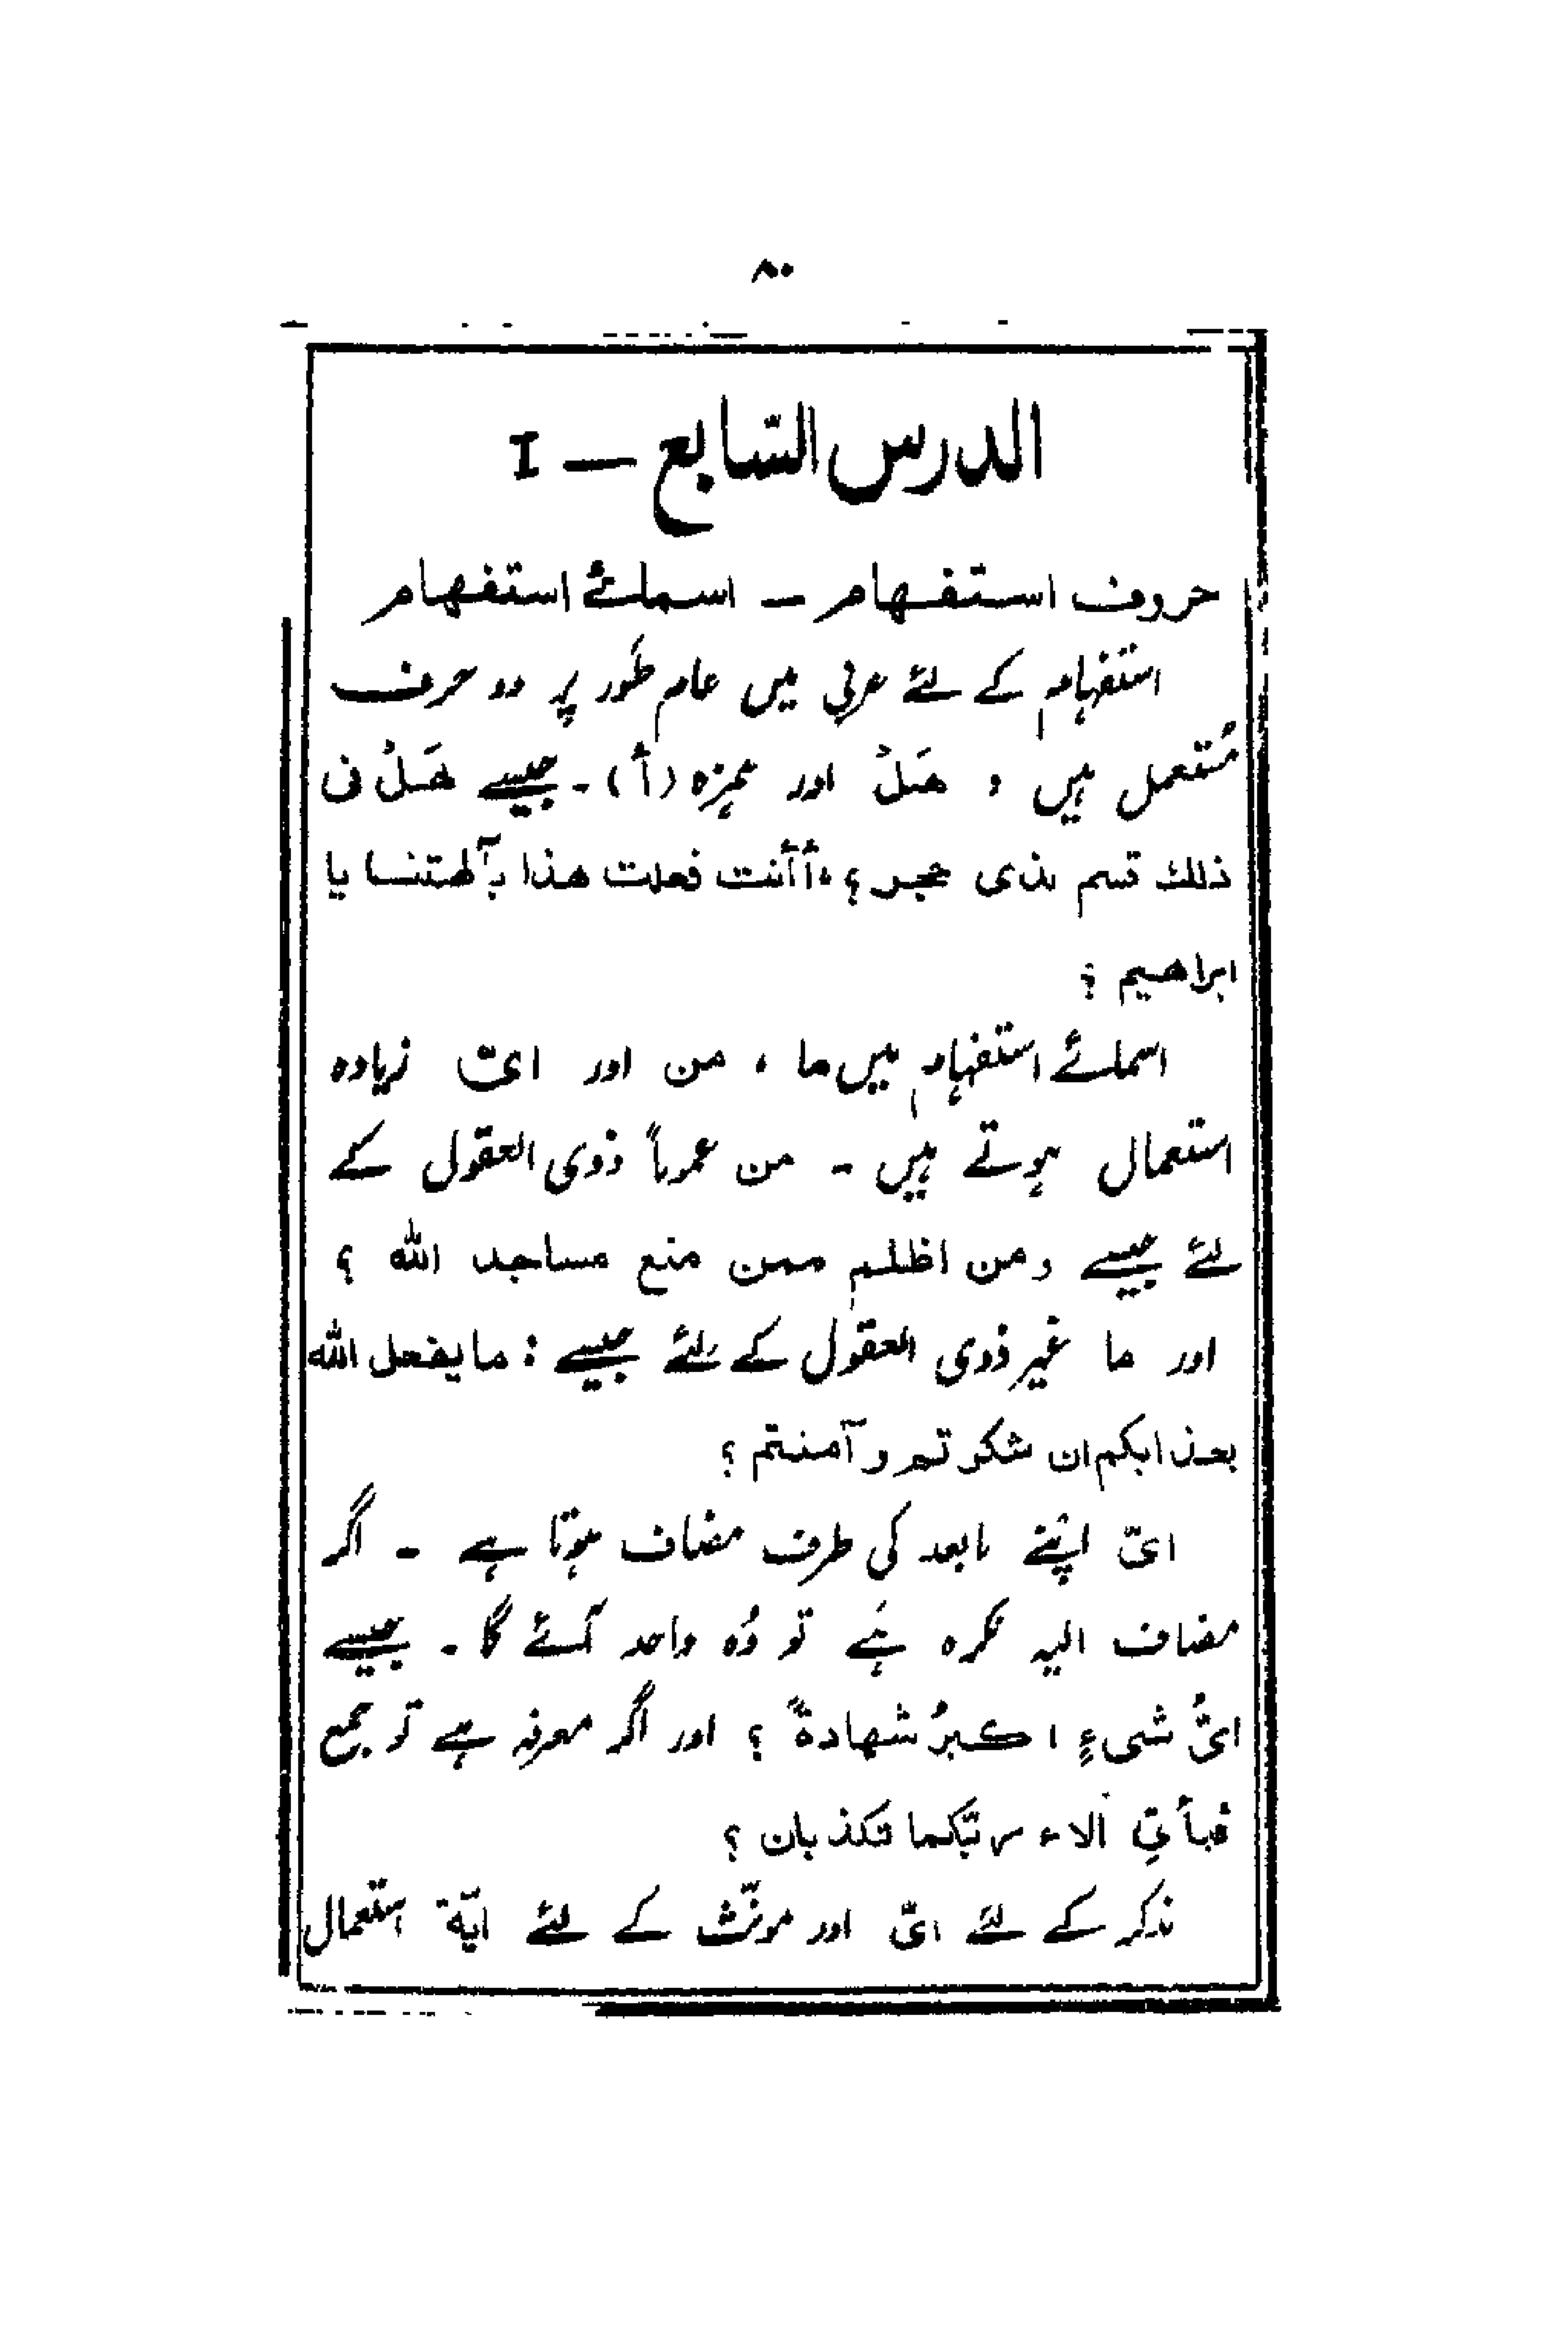 ۸۰
الدرس السّابع — I
حروف استفہام — اسمائے استفہام
استفہام کے لئے عربی میں عام طَور پر دو حرف
مُستعمل ہیں ، ھَلْ اور ہمزہ (أ) ۔ جیسے ھَلْ فی
ذلك قسم لذی حجر ؟ ، أأنت فعلت ھذا بآلھتنا یا
ابراھیم ؟
اسمائے استفہام میں ما ، من اور ایّ زیادہ
استعمال ہوتے ہیں ۔ من عموماً ذوی العقول کے
لئے جیسے ومن اظلم ممن منع مساجد اللہ ؟
اور ما غیر ذوی العقول کے لئے جیسے : ما یفعل اللہ
بعذابکم ان شکرتم و آمنتم ؟
ایّ اپنے مابعد کی طرف مضاف ہوتا ہے ۔ اگر
مضاف الیہ نکرہ ہَے تو وُہ واحد آئے گا ۔ جیسے
ایُّ شیءٍ اکبرُ شھادةً ؟ اور اگر معرفہ ہے تو جمع
فبأیِّ آلاء ربّکما تکذبان ؟
مذکر کے لئے ایّ اور مونّث کے لئے ایّة استعمال